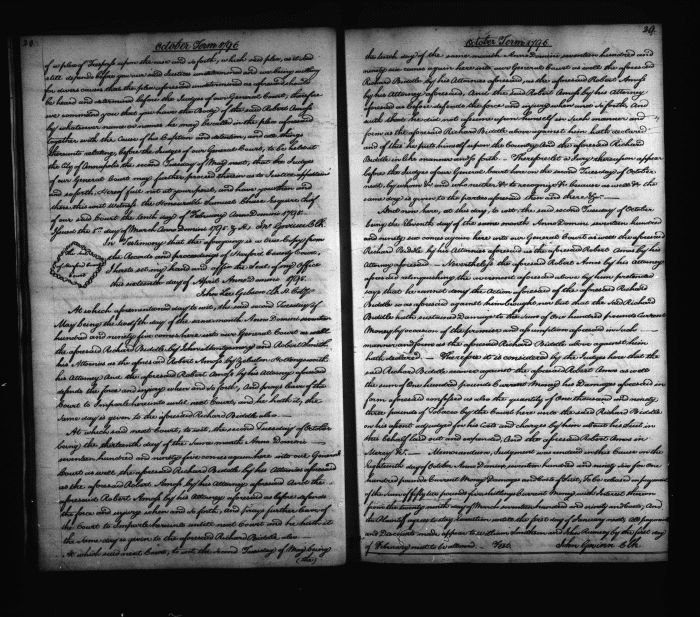 28.
October Term 1796
of a plea of Trespass upon the case and so forth, which said plea, as it is said
still depends before you and Justices undetermined and we being willing
for divers causes that the plea aforesaid undetermined as aforesaid should
be heard and determined before the Judges of our General Court, therefore
we command you that you have the Body of the said Robert Amoss
by whatsoever name or names he may be called in the plea aforesaid
together with the Cause of his Caption and detention, and all things
thereunto relating, before the Judges of our General Court, to be held at
the City of Annapolis the second Tuesday of May next, that the Judges
of our General Court may further proceed thereon as to Justice appertains
and so forth, Hereof fail not at your peril, and have you then and
there this writ Witness the Honorable Samuel Chase Esquire chief
of our said Court the tenth day of February Anno Domini 1795.
Issued the 5th day of March Anno Domini 1795 & Jno Gwinn Clk
In Testimony that the aforegoing is a true Copy from
the Records and proceedings of Harford County Court,
I hereto set my hand and affix the Seal of my Office
this sixteenth day of April Anno Domini 1795.
John Lee Gibson Clk
At which aforementioned day to wit, the said second Tuesday of
May being the twelfth day of the same month Anno Domini seventeen
hundred and ninety five comes here into our General Court as well
the aforesaid Richard Biddle by John Montgomery and Robert Smith
his Attornies as the aforesaid Robert Amoss by Zebulon Hollingsworth
his Attorney And the aforesaid Robert Amoss by his Attorney aforesaid
defends the force and injury when and so forth, and prays leave of the
Court to Imparle hereunto until next Court, and he hath it, the
same day is given to the aforesaid Richard Biddle also
At which said next Court, to wit, the second Tuesday of October
being the thirteenth day of the same month Anno Domini
seventeen hundred and ninety five comes again here into our General
Court as well the aforesaid Richard Biddle by his Attornies aforesaid
as the aforesaid Robert Amoss by his Attorney aforesaid And the
aforesaid Robert Amoss by his Attorney aforesaid as before defends
the force and injury when and so forth, and prays further leave of
the Court to Imparle hereunto until next Court and he hath it
the same day is given to the aforesaid Richard Biddle also
At which said next Court, to wit the second Tuesday of May being
(the)
29.
October Term 1796
the tenth day of the same month Anno Domini seventeen hundred and
ninety six comes again here into our General Court as well the aforesaid
Richard Biddle by his Attornies aforesaid, as the aforesaid Robert Amoss
by his Attorney aforesaid, And the said Robert Amoss by his Attorney
aforesaid as before defends the force and injury when and so forth, And
saith that he did not assume upon himself in such manner and
form as the aforesaid Richard Biddle above against him hath declared
and of this he puts himself upon the Country And the aforesaid Richard
Biddle in like manner and so forth. Therefore let a Jury thereupon appear
before the Judges of our General Court here on the second Tuesday of October
next, by whom &c and who neither &c to recognize &c because as well &c the
same day is given to the parties aforesaid then and there &c
And now here, at this day, to wit, the said second Tuesday of October
being the Eleventh day of the same month Anno Domini seventeen hundred
and ninety six comes again here into our General Court as well the aforesaid
Richard Biddle by his Attornies aforesaid as the aforesaid Robert Amoss by his
Attorney aforesaid. Nevertheless the aforesaid Robert Amoss by his Attorney
aforesaid relinquishing the averment aforesaid above by him pretended
says that he cannot deny the action aforesaid of the aforesaid Richard
Biddle so as aforesaid against him brought nor but that the said Richard
Biddle hath sustained Damage to the sum of One hundred pounds Current
Money by occasion of the premises and assumption aforesaid in such
manner and form as the aforesaid Richard Biddle above against him
hath declared. Therefore it is considered by the Judges here that the
said Richard Biddle recover against the aforesaid Robert Amoss as well
the sum of One hundred pounds Current Money his Damages aforesaid in
form aforesaid confessed as also the quantity of One thousand and ninety
three pounds of Tobacco by the Court here unto the said Richard Biddle
on his assent adjudged for his Costs and charges by him about his suit in
this behalf laid out and expended, And the aforesaid Robert Amoss in
Mercy &c. Memorandum, Judgment was rendered in this Cause on the
Eighteenth day of October Anno Domini seventeen hundred and ninety six for One
hundred pounds Current Money Damages and Costs of Suit. To be released on payment
of the Sum of fifty six pounds five shillings Current Money with Interest thereon
from the twenty ninth day of March seventeen hundred and ninety and Costs, And
the Plaintiff agrees to stay execution until the first day of January next, all payments
and Discounts made, appear to William Smithson and John Rumsey by the first day
of February next to be allowed. Test
John Gwinn Clk